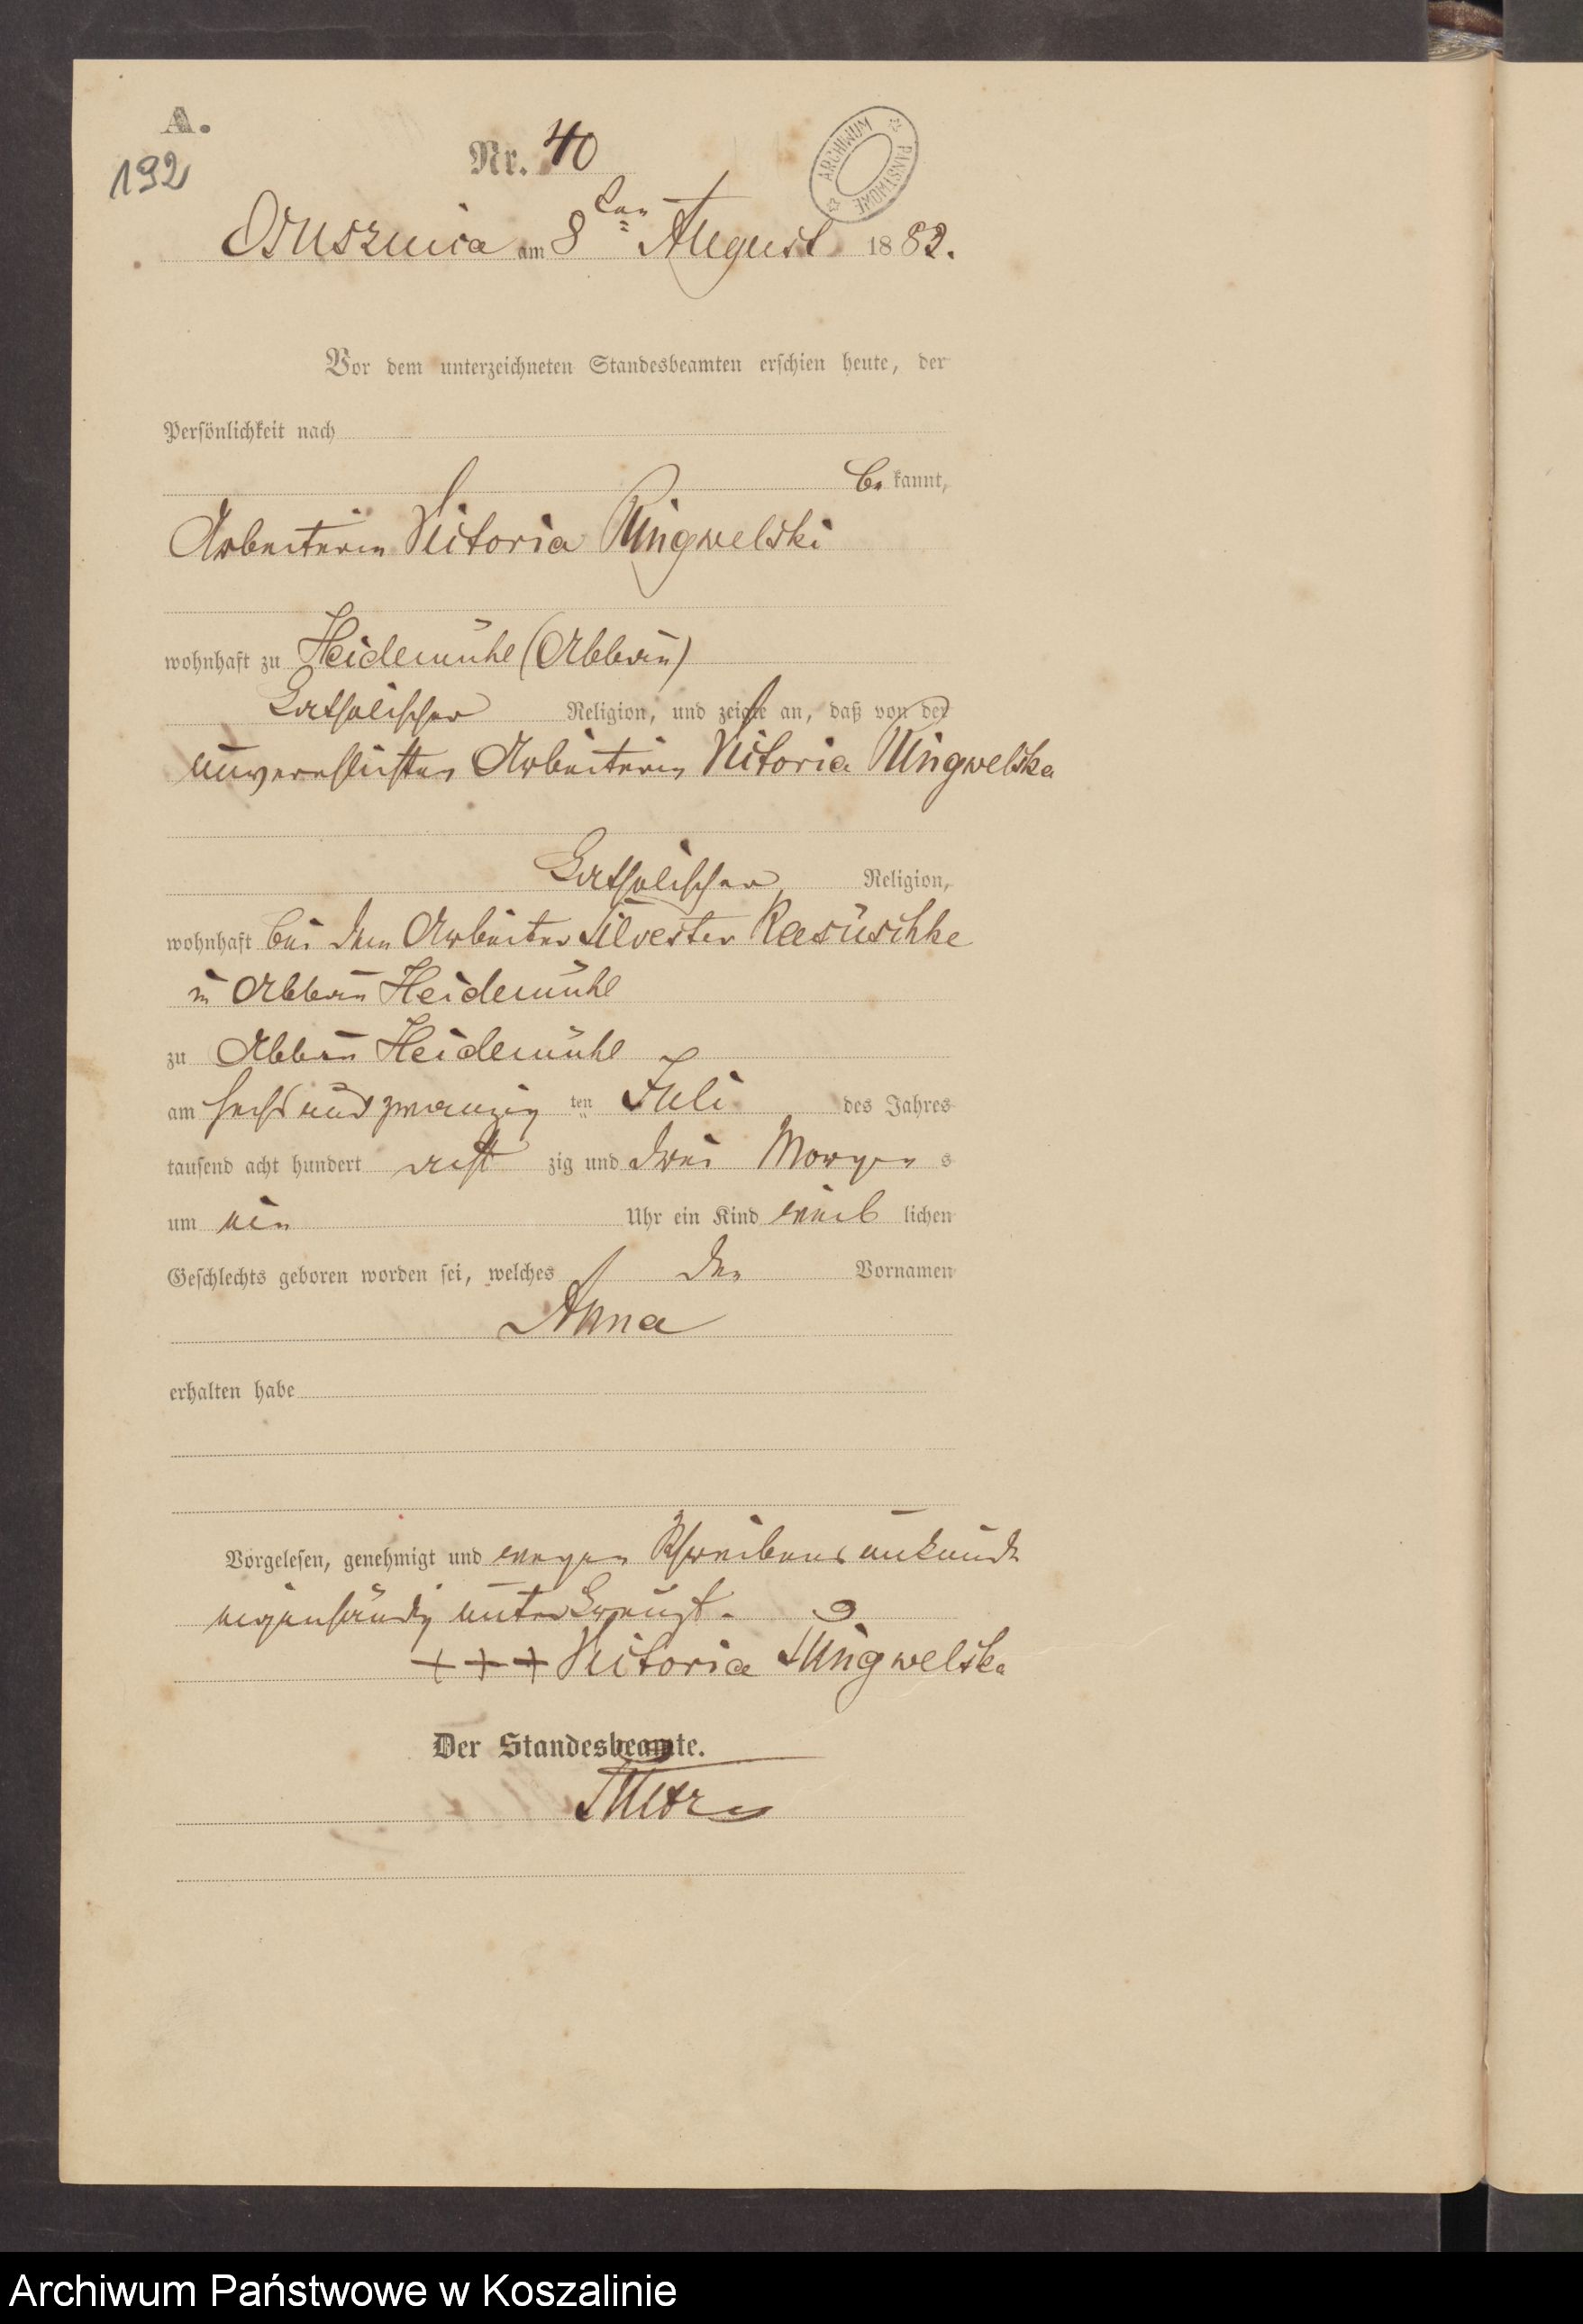 A.
192
Nr. 40
ARCHIWUM PAŃSTWOWE
Osusznica am 8ten August 1882.
Vor dem unterzeichneten Standesbeamten erschien heute, der
Persönlichkeit nach
be kannt,
Arbeiterin Victoria Pingwelski
wohnhaft zu Heidemühl (Abbau)
katholischer Religion, und zeigte an, daß von der
unverehlichten Arbeiterin Victoria Pingwelska
katholischer Religion,
wohnhaft bei dem Arbeiter Silvester Kasuschke
in Abbau Heidemühl
zu Abbau Heidemühl
am sechsundzwanzig ten Juli des Jahres
tausend acht hundert acht zig und zwei Morgen s
um ein Uhr ein Kind weib lichen
Geschlechts geboren worden sei, welches den Vornamen
Anna
erhalten habe
Vorgelesen, genehmigt und wegen Schreibensunkunde
eigenhändig unterkreuzt.
+++ Victoria Pingwelska
Der Standesbeamte.
Archiwum Państwowe w Koszalinie